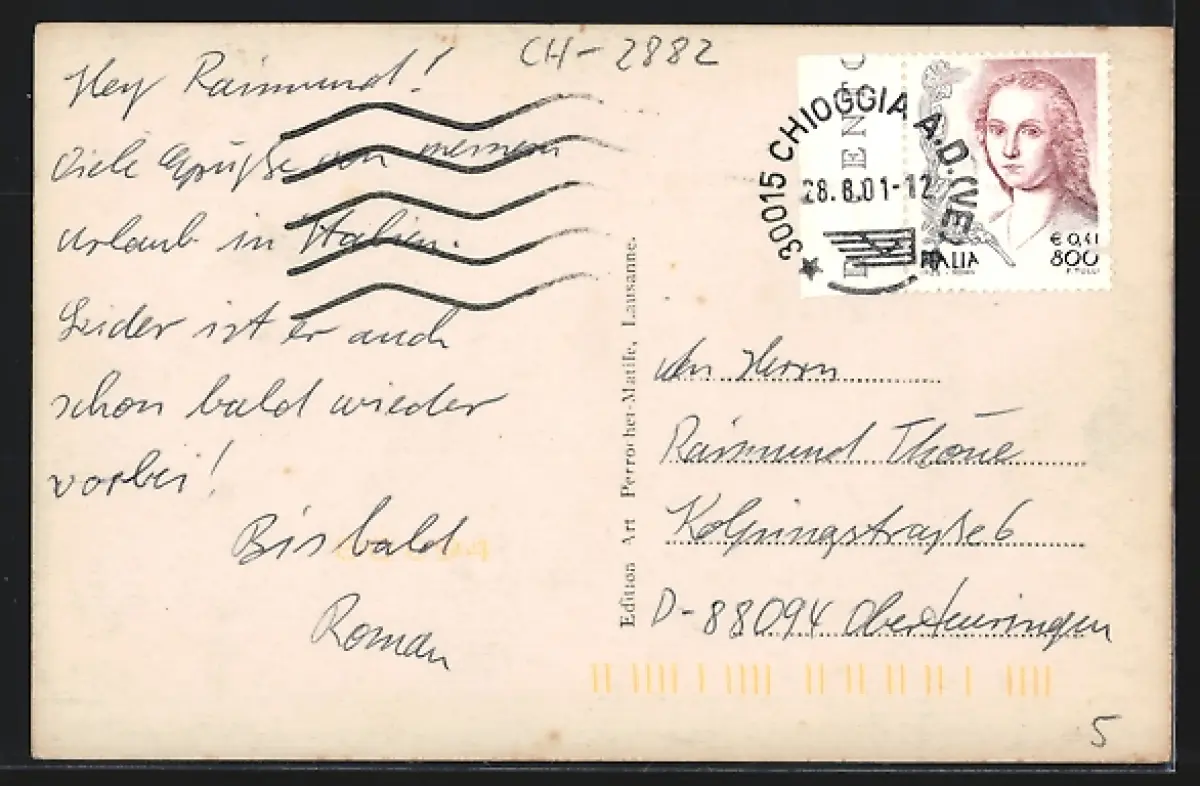 CH-2882
Hey Raimund!
Viele Grüße von meinem
Urlaub in Italien.
Leider ist er auch
schon bald wieder
vorbei!
Bis bald
Roman
Edition Art Perrochet-Matile, Lausanne.
30015 CHIOGGIA A.D. (VE)
28.8.01-12
ITALIA
€ 0,41
800
F. TULLI
An Herrn
Raimund Thöne
Kolpingstraße 6
D-88094 Oberteuringen
5